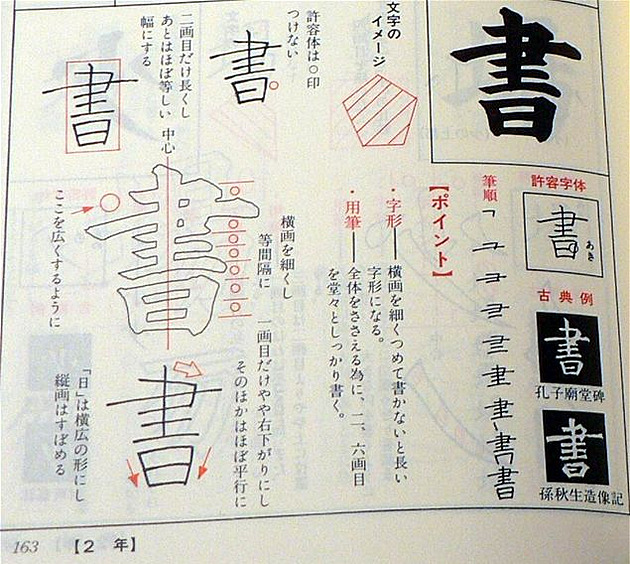 書
許容字体
書
あき
古典例
書
孔子廟堂碑
書
孫秋生造像記
筆順
書
【ポイント】
・字形──横画を細くつめて書かないと長い
字形になる。
・用筆──全体をささえる為に、二、六画目
を堂々としっかり書く。
文字の
イメージ
許容体は○印
つけない
書
二画目だけ長くし
あとはほぼ等しい
幅にする
書
中心
書
横画を細くし
等間隔に
ここを広くするように
一画目だけやや右下がりにし
そのほかはほぼ平行に
書
「日」は横広の形にし
縦画はすぼめる
163 【2 年】